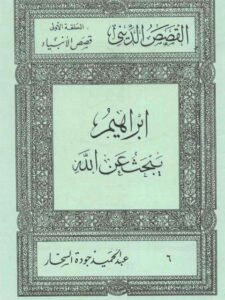 القصص الديني
الحلقة الأولى
قصص الأنبياء
ابراهيم
يبحث عن الله
٦
عبد الحميد جودة السحار